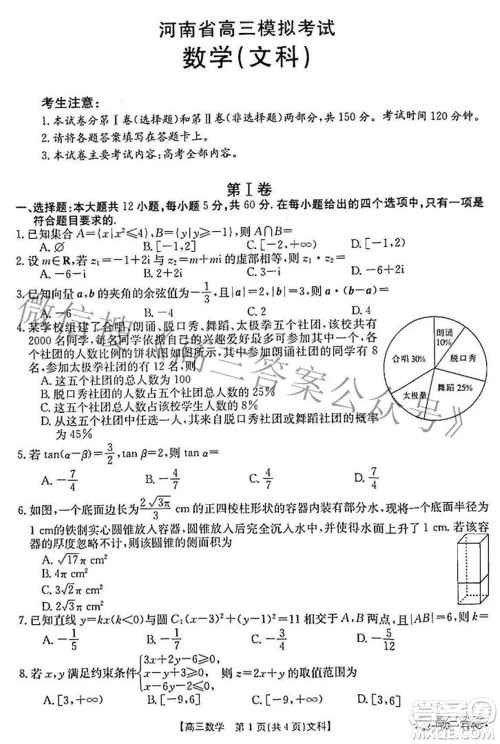 河南省高三模拟考试
数学(文科)
考生注意:
1.本试卷分第Ⅰ卷(选择题)和第Ⅱ卷(非选择题)两部分,共150分。考试时间120分钟。
2.请将各题答案填写在答题卡上。
3.本试卷主要考试内容:高考全部内容。
第Ⅰ卷
一、选择题:本大题共12小题,每小题5分,共60分.在每小题给出的四个选项中,只有一项是
符合题目要求的.
1.已知集合A={x|x²≤4},B={y|y≥-1},则A∩B=
A.∅ B.[-1,2] C.[-2,-1] D.[-2,+∞)
2.设m∈R,若z₁=-1+2i与z₂=m-2i的虚部相等,则z₁·z₂=
A.-6-i B.-6+i C.-2 D.2
3.已知向量a,b的夹角的余弦值为-1/3,且|a|=2,
4.某学校组建了合唱、朗诵、脱口秀、舞蹈、太极拳五个社团,该校共有
2000名同学,每名同学依据自己兴趣爱好最多可参加其中一个,各个
社团的人数比例的饼状图如图所示,其中参加朗诵社团的同学有8名,
参加太极拳社团的有12名,则
朗诵
10%
合唱30%
脱口秀
太极拳
舞蹈25%
A.这五个社团的总人数为100
B.脱口秀社团的人数占五个社团总人数的20%
C.这五个社团总人数占该校学生人数的8%
D.从这五个社团中任选一人,其来自脱口秀社团或舞蹈社团的概率
为45%
5.若tan(α-β)=3/2,tan β=2,则tan α=
A.-7/4 B.7/4
6.如图,一个底面边长为2√3π/3 cm的正四棱柱形状的容器内装有部分水,现将一个底面半径为
1 cm的铁制实心圆锥放入容器,圆锥放入后完全沉入水中,并使得水面上升了1 cm.若该容器
的厚度忽略不计,则该圆锥的侧面积为
A.√17π cm²
B.4π cm²
C.2√5π cm²
D.2√3π cm²
7.已知直线y=kx(k>0)与圆C:(x-3)²+(y-2)²=11相交于A,B两点,且|AB|=6,则k=
A.-1/5 D.-5/12
8.若x,y满足约束条件{3x+2y-6≥0, x+y-3≤0, y≤2,则z=x+2y的取值范围为
A.[3,+∞) B.[3,6] D.[6,+∞)
【高三数学 第1页(共4页)文科】